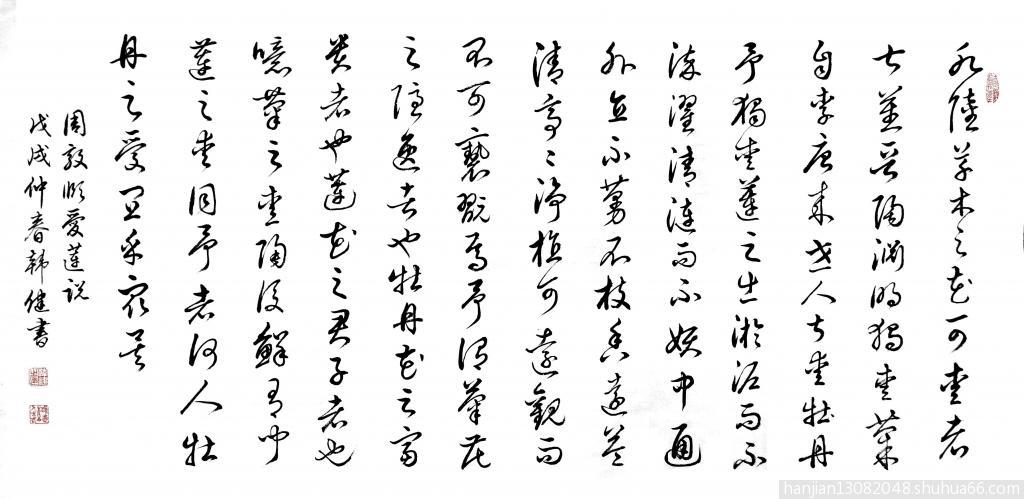 水陸草木之花可愛者
甚蕃晉陶淵明獨愛菊
自李唐來世人甚愛牡丹
予獨愛蓮之出淤泥而不
染濯清漣而不妖中通
外直不蔓不枝香遠益
清亭〻淨植可遠觀而
不可褻翫焉予謂菊花
之隱逸者也牡丹花之富
貴者也蓮花之君子者也
噫菊之愛陶後鮮有聞
蓮之愛同予者何人牡
丹之愛宜乎衆矣
周敦頤愛蓮說
戊戌仲春韓健書
hanjian13082048.shuhua66.com